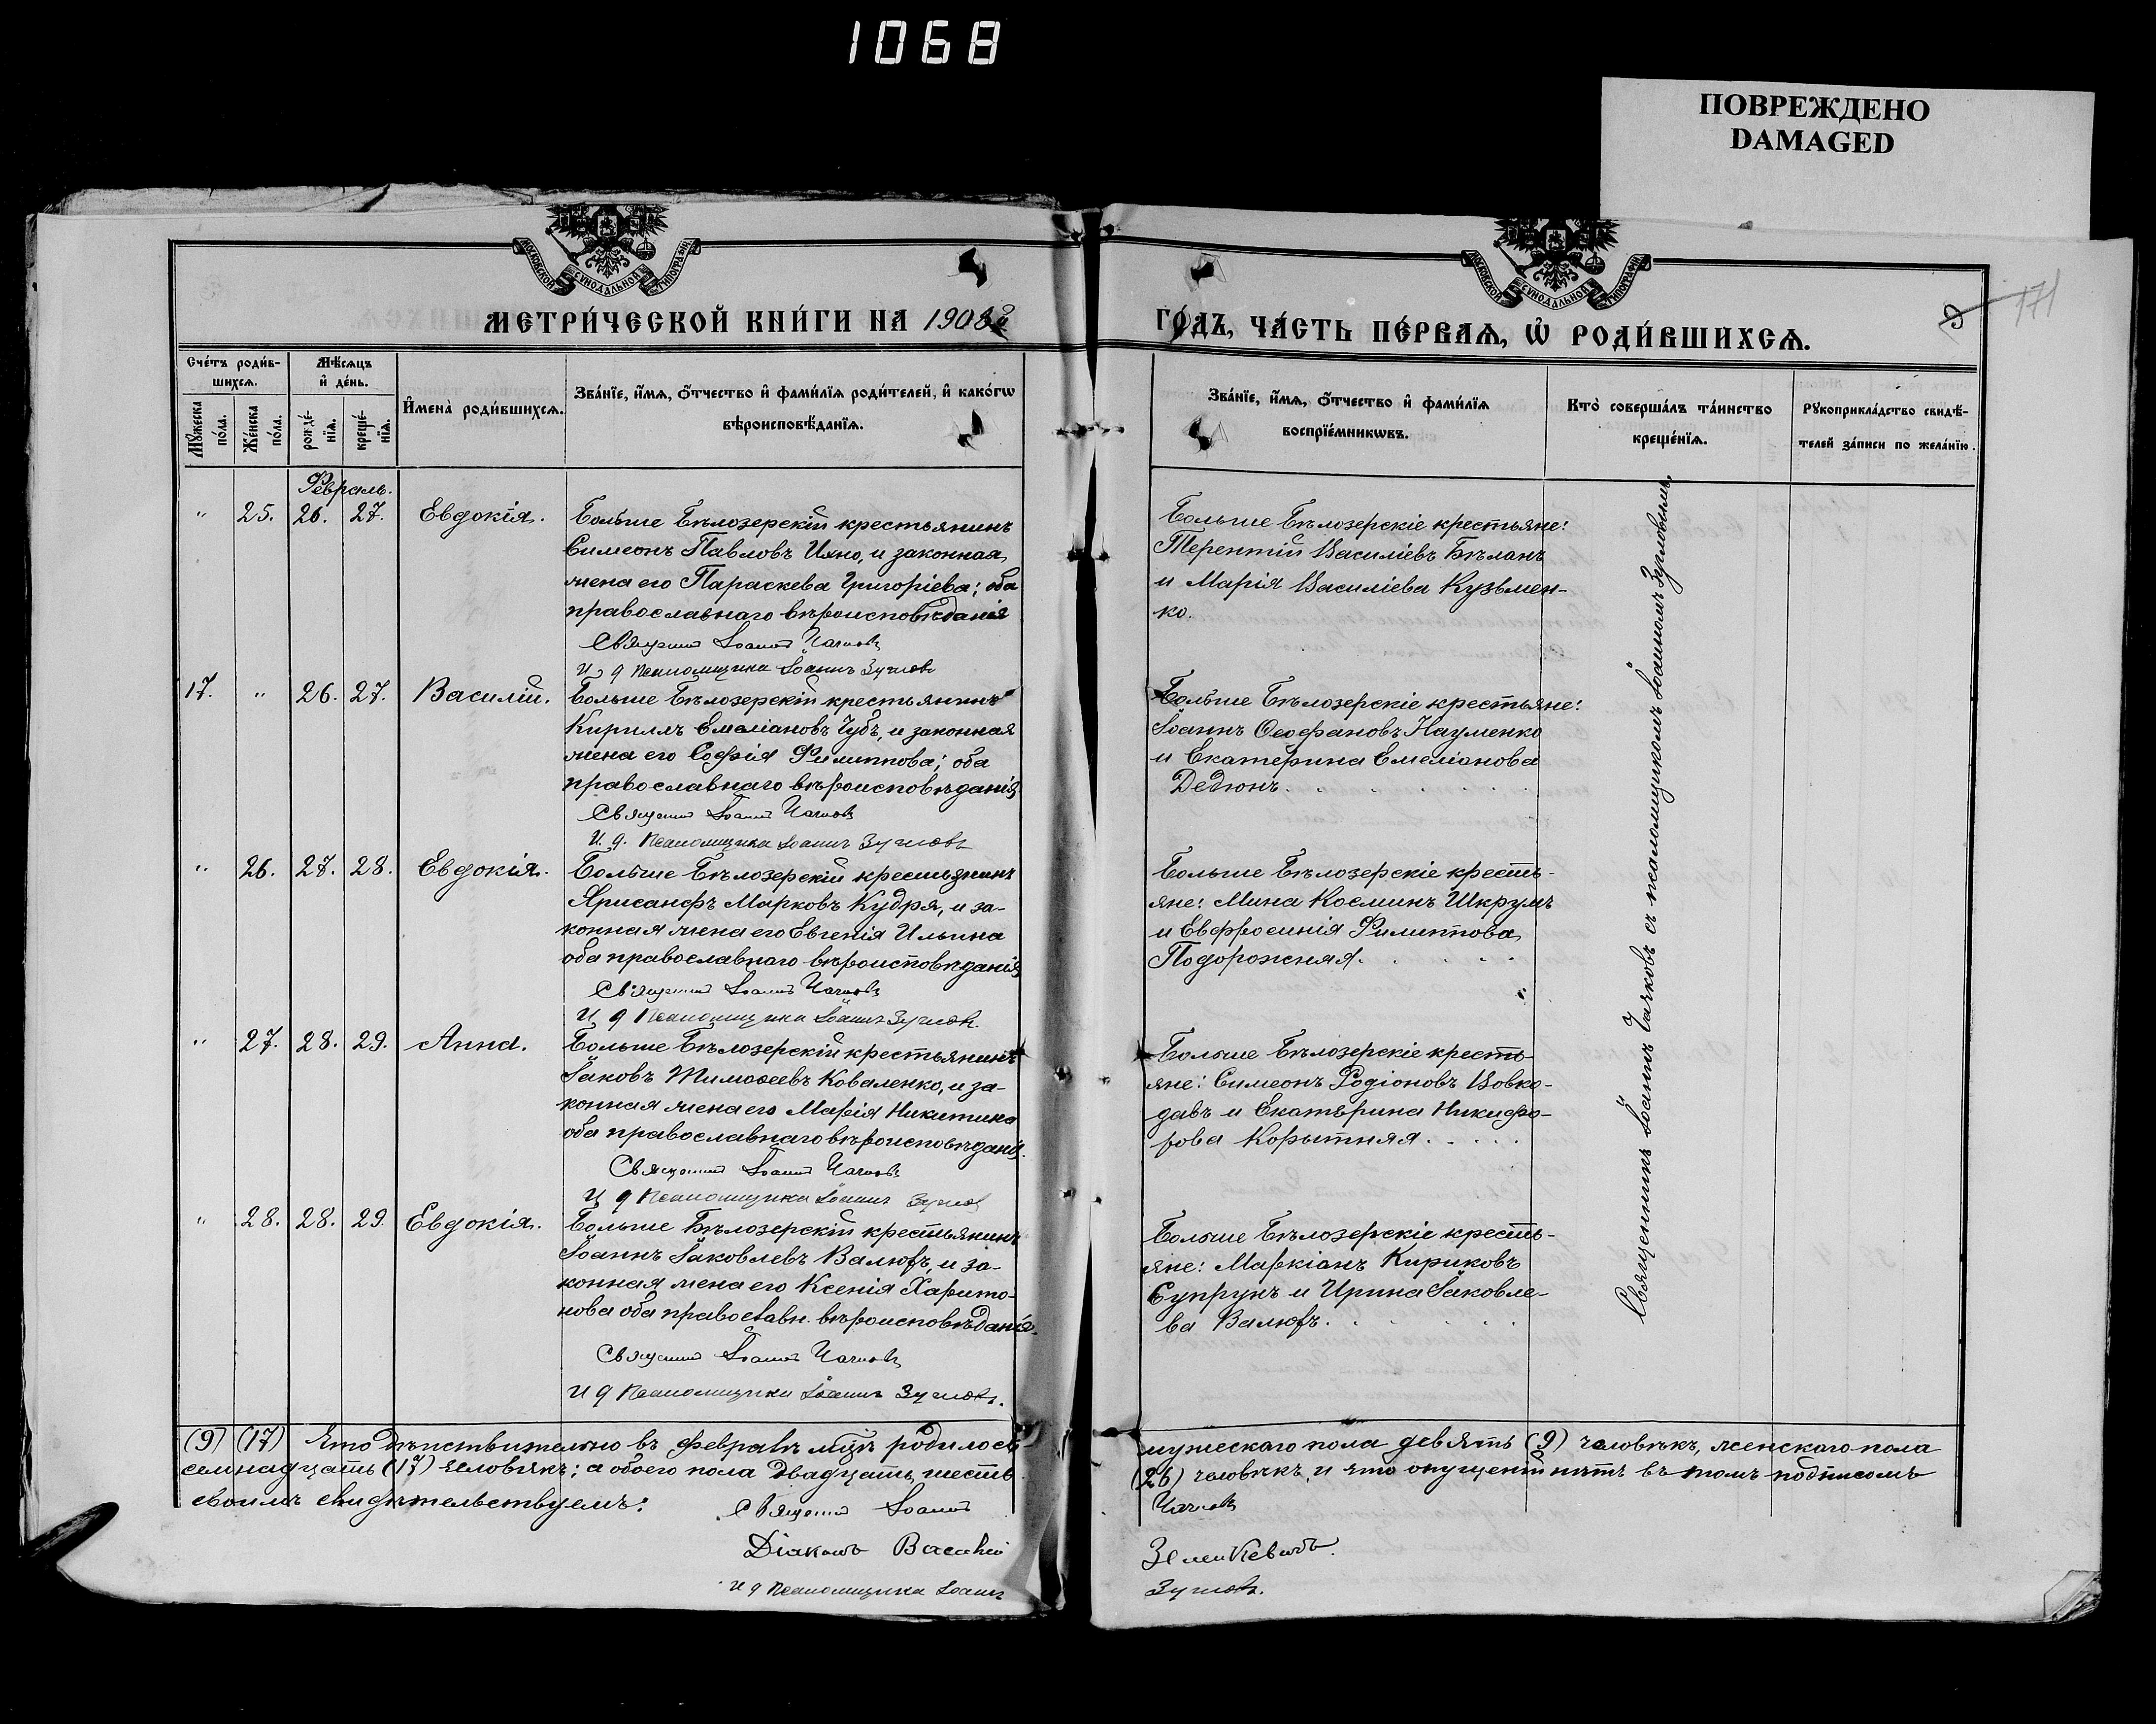 1068
ПОВРЕЖДЕНО
DAMAGED
МОСКОВСКОЙ СѴНОДАЛЬНОЙ ТИПОГРАФІИ
МОСКОВСКОЙ СѴНОДАЛЬНОЙ ТИПОГРАФІИ
171
МЕТРИ́ЧЕСКОЙ КНИ́ГИ НА 1908й
ГО́ДЪ, ЧА́СТЬ ПЕ́РВАѦ, Ѡ҆ РОДИ́ВШИХСѦ.
Сче́тъ роди́в-
шихсѧ.
Мѣ́сѧцъ
и҆ де́нь.
Мꙋ́жеска
по́ла.
Же́нска
по́ла.
рожде́-
нїѧ.
креще́-
нїѧ.
И҆мена̀ роди́вшихсѧ.
Зва́нїе, и҆́мѧ, ѻ҆́тчество и҆ фами́лїѧ роди́телей, и҆ како́гѡ
вѣроисповѣ́данїѧ.
Зва́нїе, и҆́мѧ, ѻ҆́тчество и҆ фами́лїѧ
воспрїе́мникѡвъ.
Кто̀ соверша́лъ та́инство
креще́нїѧ.
Рꙋкоприкла́дство свидѣ́-
телей за́писи по жела́нїю.
Февраль.
" 25. 26. 27. Евдокія.
Больше Бѣлозерскій крестьянинъ
Симеонъ Павловъ Ихно, и законная
жена его Параскева Григоріева; оба
православнаго вѣроисповѣданія
Священ Іоаннъ Чачковъ
И д псаломщика Іоаннъ Зузловъ
Больше Бѣлозерскіе крестьяне:
Терентій Василіевъ Бѣланъ
и Марія Василіева Кузьмен-
ко.
17. " 26. 27. Василій.
Больше Бѣлозерскій крестьянинъ
Кириллъ Емеліановъ Чубъ, и законная
жена его Софія Филиппова; оба
православнаго вѣроисповѣданія
Священ Іоаннъ Чачковъ
И. д. псаломщика Іоаннъ Зузловъ
Больше Бѣлозерскіе крестьяне:
Іоаннъ Ѳеофановъ Науменко
и Екатерина Емеліанова
Дедюнъ.
" 26. 27. 28. Евдокія.
Больше Бѣлозерскій крестьянинъ
Хрисанфъ Марковъ Кудря, и за-
конная жена его Евгенія Ильина
оба православнаго вѣроисповѣданія
Священ Іоаннъ Чачковъ
И д псаломщика Іоаннъ Зузловъ.
Больше Бѣлозерскіе кресть-
яне: Мина Косминъ Шкрумъ
и Евфросинія Филиппова
Подорожняя.
" 27. 28. 29. Анна.
Больше Бѣлозерскій крестьянинъ
Іаковъ Тимоѳеевъ Коваленко, и за-
конная жена его Марія Никитина
оба православнаго вѣроисповѣданія.
Священ Іоаннъ Чачковъ
И д псаломщика Іоаннъ Зузловъ
Больше Бѣлозерскіе кресть-
яне: Симеонъ Родіоновъ Вовко-
давъ и Екатерина Никифо-
рова Корытняя.
" 28. 28. 29. Евдокія.
Больше Бѣлозерскій крестьянинъ
Іоаннъ Іаковлевъ Валюхъ, и за-
конная жена его Ксенія Харито-
нова оба православн. вѣроисповѣданія.
Священ Іоаннъ Чачковъ
И д псаломщика Іоаннъ Зузловъ.
Больше Бѣлозерскіе кресть-
яне: Маркіанъ Кириковъ
Супрунъ и Ирина Іаковле-
ва Валюхъ.
Священникъ Іоаннъ Чачковъ съ псаломщикомъ Іоанномъ Зузловымъ.
(9) (17) Что дѣйствительно въ февралѣ мцѣ родилось мужескаго пола девять (9) человѣкъ, женскаго пола
семнадцать (17) человѣкъ; а обоего пола двадцать шесть (26) человѣкъ, и что опущеній нѣтъ въ томъ подписомъ
своимъ свидѣтельствуемъ: Священ Іоаннъ Чачковъ
Діаконъ Василій Зелинкевичъ.
И д псаломщика Іоаннъ Зузловъ.